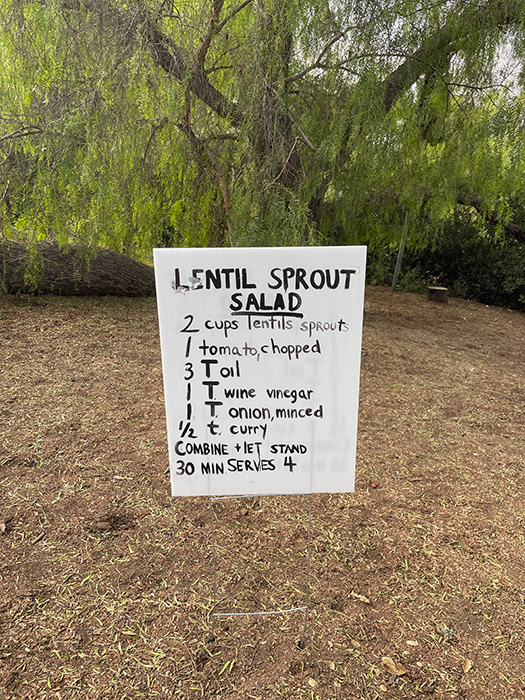 LENTIL SPROUT
SALAD
2 cups lentils sprouts
1 tomato, chopped
3 T oil
1 T wine vinegar
1 T onion, minced
1/2 t. curry
COMBINE + LET STAND
30 MIN SERVES 4